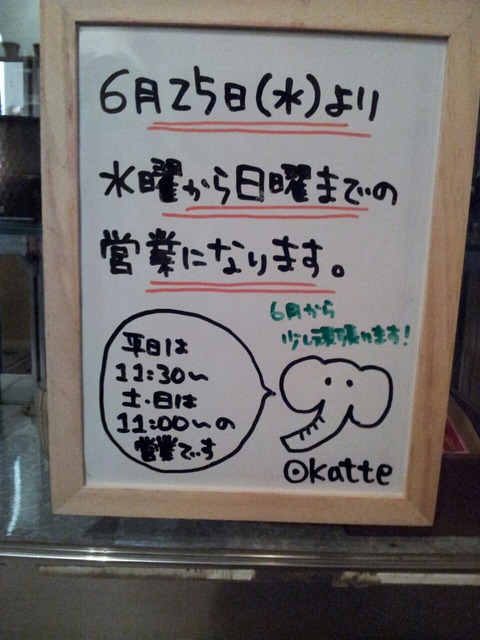 6月25日(水)より
水曜から日曜までの
営業になります。
6月から
少し頑張ります!
平日は
11:30〜
土・日は
11:00〜の
営業です
Okatte